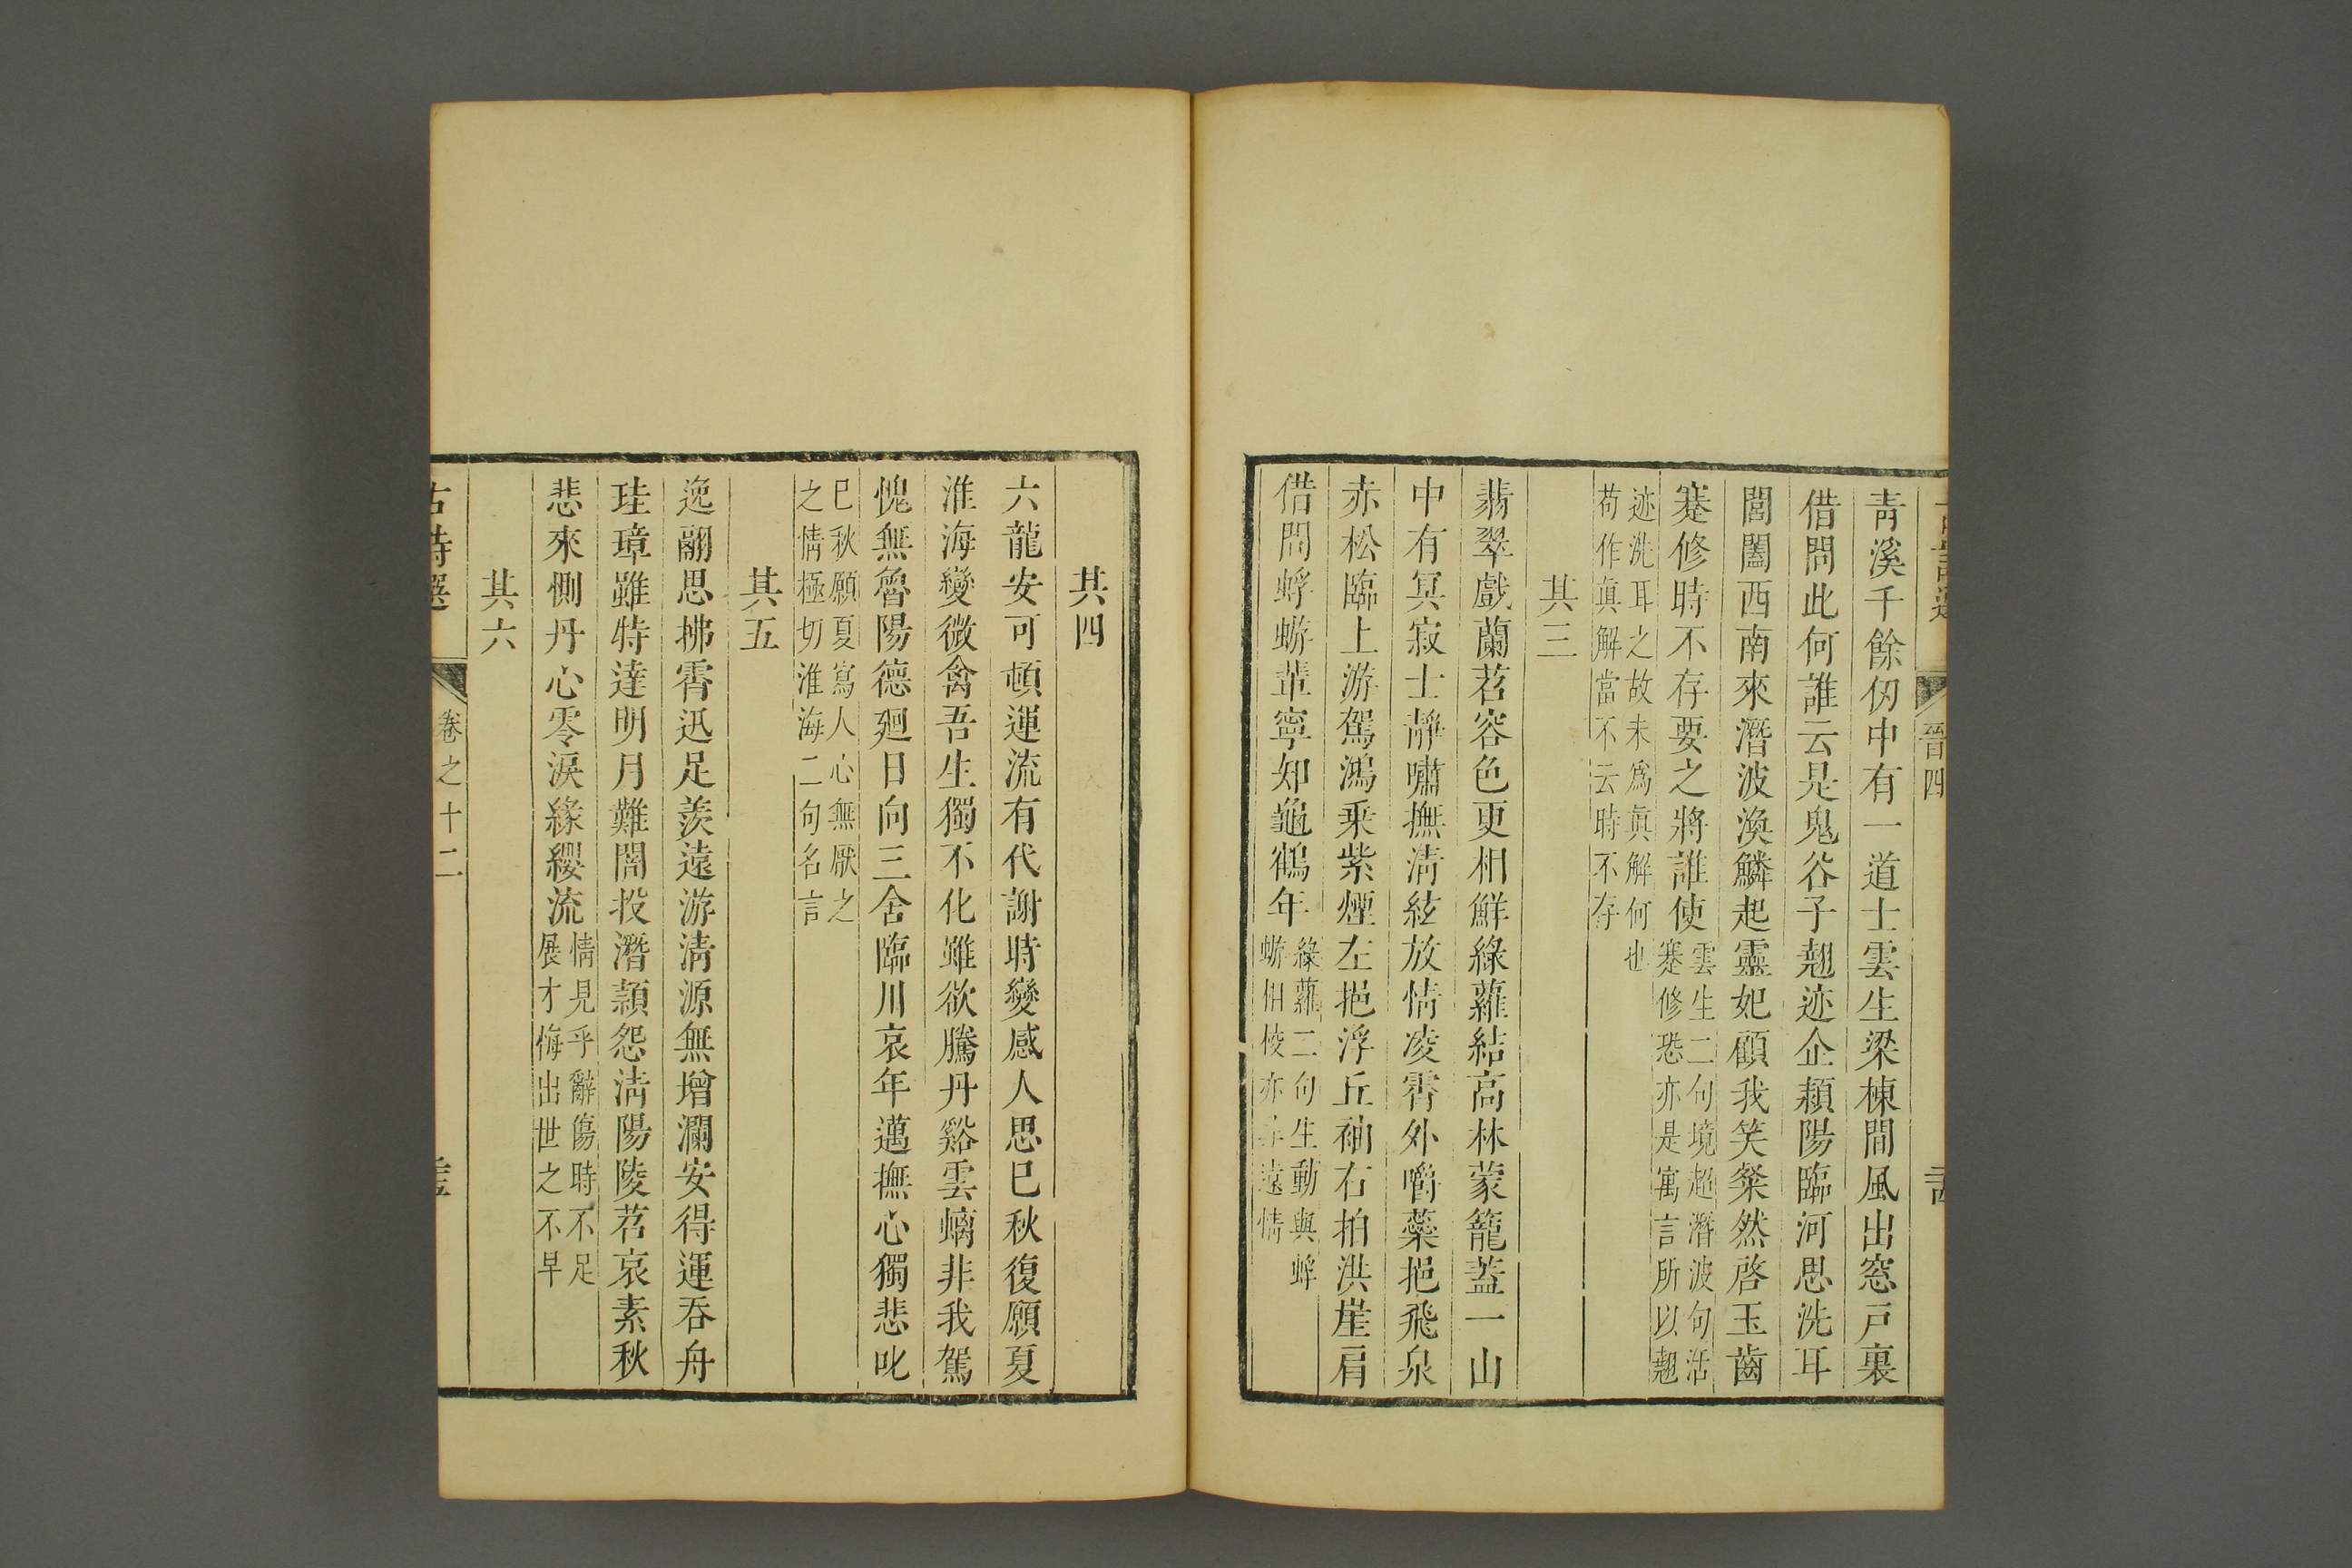 晉四
青溪千餘仞中有一道士雲生梁棟間風出窓戸裏
借問此何誰云是鬼谷子翹迹企潁陽臨河思洗耳
閶闔西南來潛波渙鱗起靈妃顧我笑粲然啓玉齒
蹇修時不存要之將誰使
雲生二句境超潛波句活
蹇修恐亦是寓言所以翹
迹洗耳之故未爲眞解何也
苟作眞解當不云時不存
其三
翡翠戲蘭苕容色更相鮮綠蘿結高林蒙籠蓋一山
中有冥寂士靜嘯撫淸絃放情凌霄外嚼蘂挹飛泉
赤松臨上游駕鴻乘紫煙左挹浮丘袖右拍洪崖肩
借問蜉蝣輩寧知龜鶴年
綠蘿二句生動與蜉
蝣相校亦遠情
其四
六龍安可頓運流有代謝時變感人思巳秋復願夏
淮海變微禽吾生獨不化雖欲騰丹谿雲螭非我駕
愧無魯陽德廻日向三舍臨川哀年邁撫心獨悲吒
巳秋願夏寫人心無厭之
之情極切淮海二句名言
其五
逸翮思拂霄迅足羨遠游淸源無增瀾安得運吞舟
珪璋雖特達明月難闇投潛穎怨淸陽陵苕哀素秋
悲來惻丹心零淚緣纓流
情見乎辭傷時不足
展才悔出世之不早
其六
古詩選
卷之十二